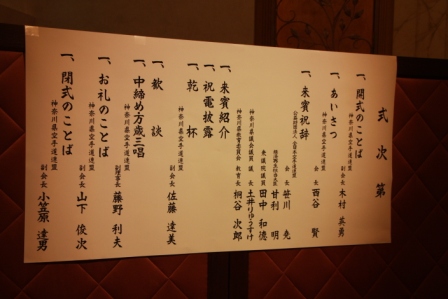 式次第
一、開式のことば
神奈川県空手道連盟 副会長 木村 英勇
一、あいさつ
神奈川県空手道連盟 会長 西谷 賢
一、来賓祝辞
会長 笹川 堯
甘利 明
衆議院議員 田中 和徳
神奈川県議会議員 議長 土井りゅうすけ
神奈川県教育委員会 教育長 桐谷 次郎
一、来賓紹介
一、祝電披露
一、乾杯
神奈川県空手道連盟 副会長 佐藤 達美
一、歓談
一、中締め万歳三唱
神奈川県空手道連盟 副理事長 藤野 利夫
一、お礼のことば
神奈川県空手道連盟 副会長 山下 俊次
一、閉式のことば
神奈川県空手道連盟 副会長 小笠原 達男